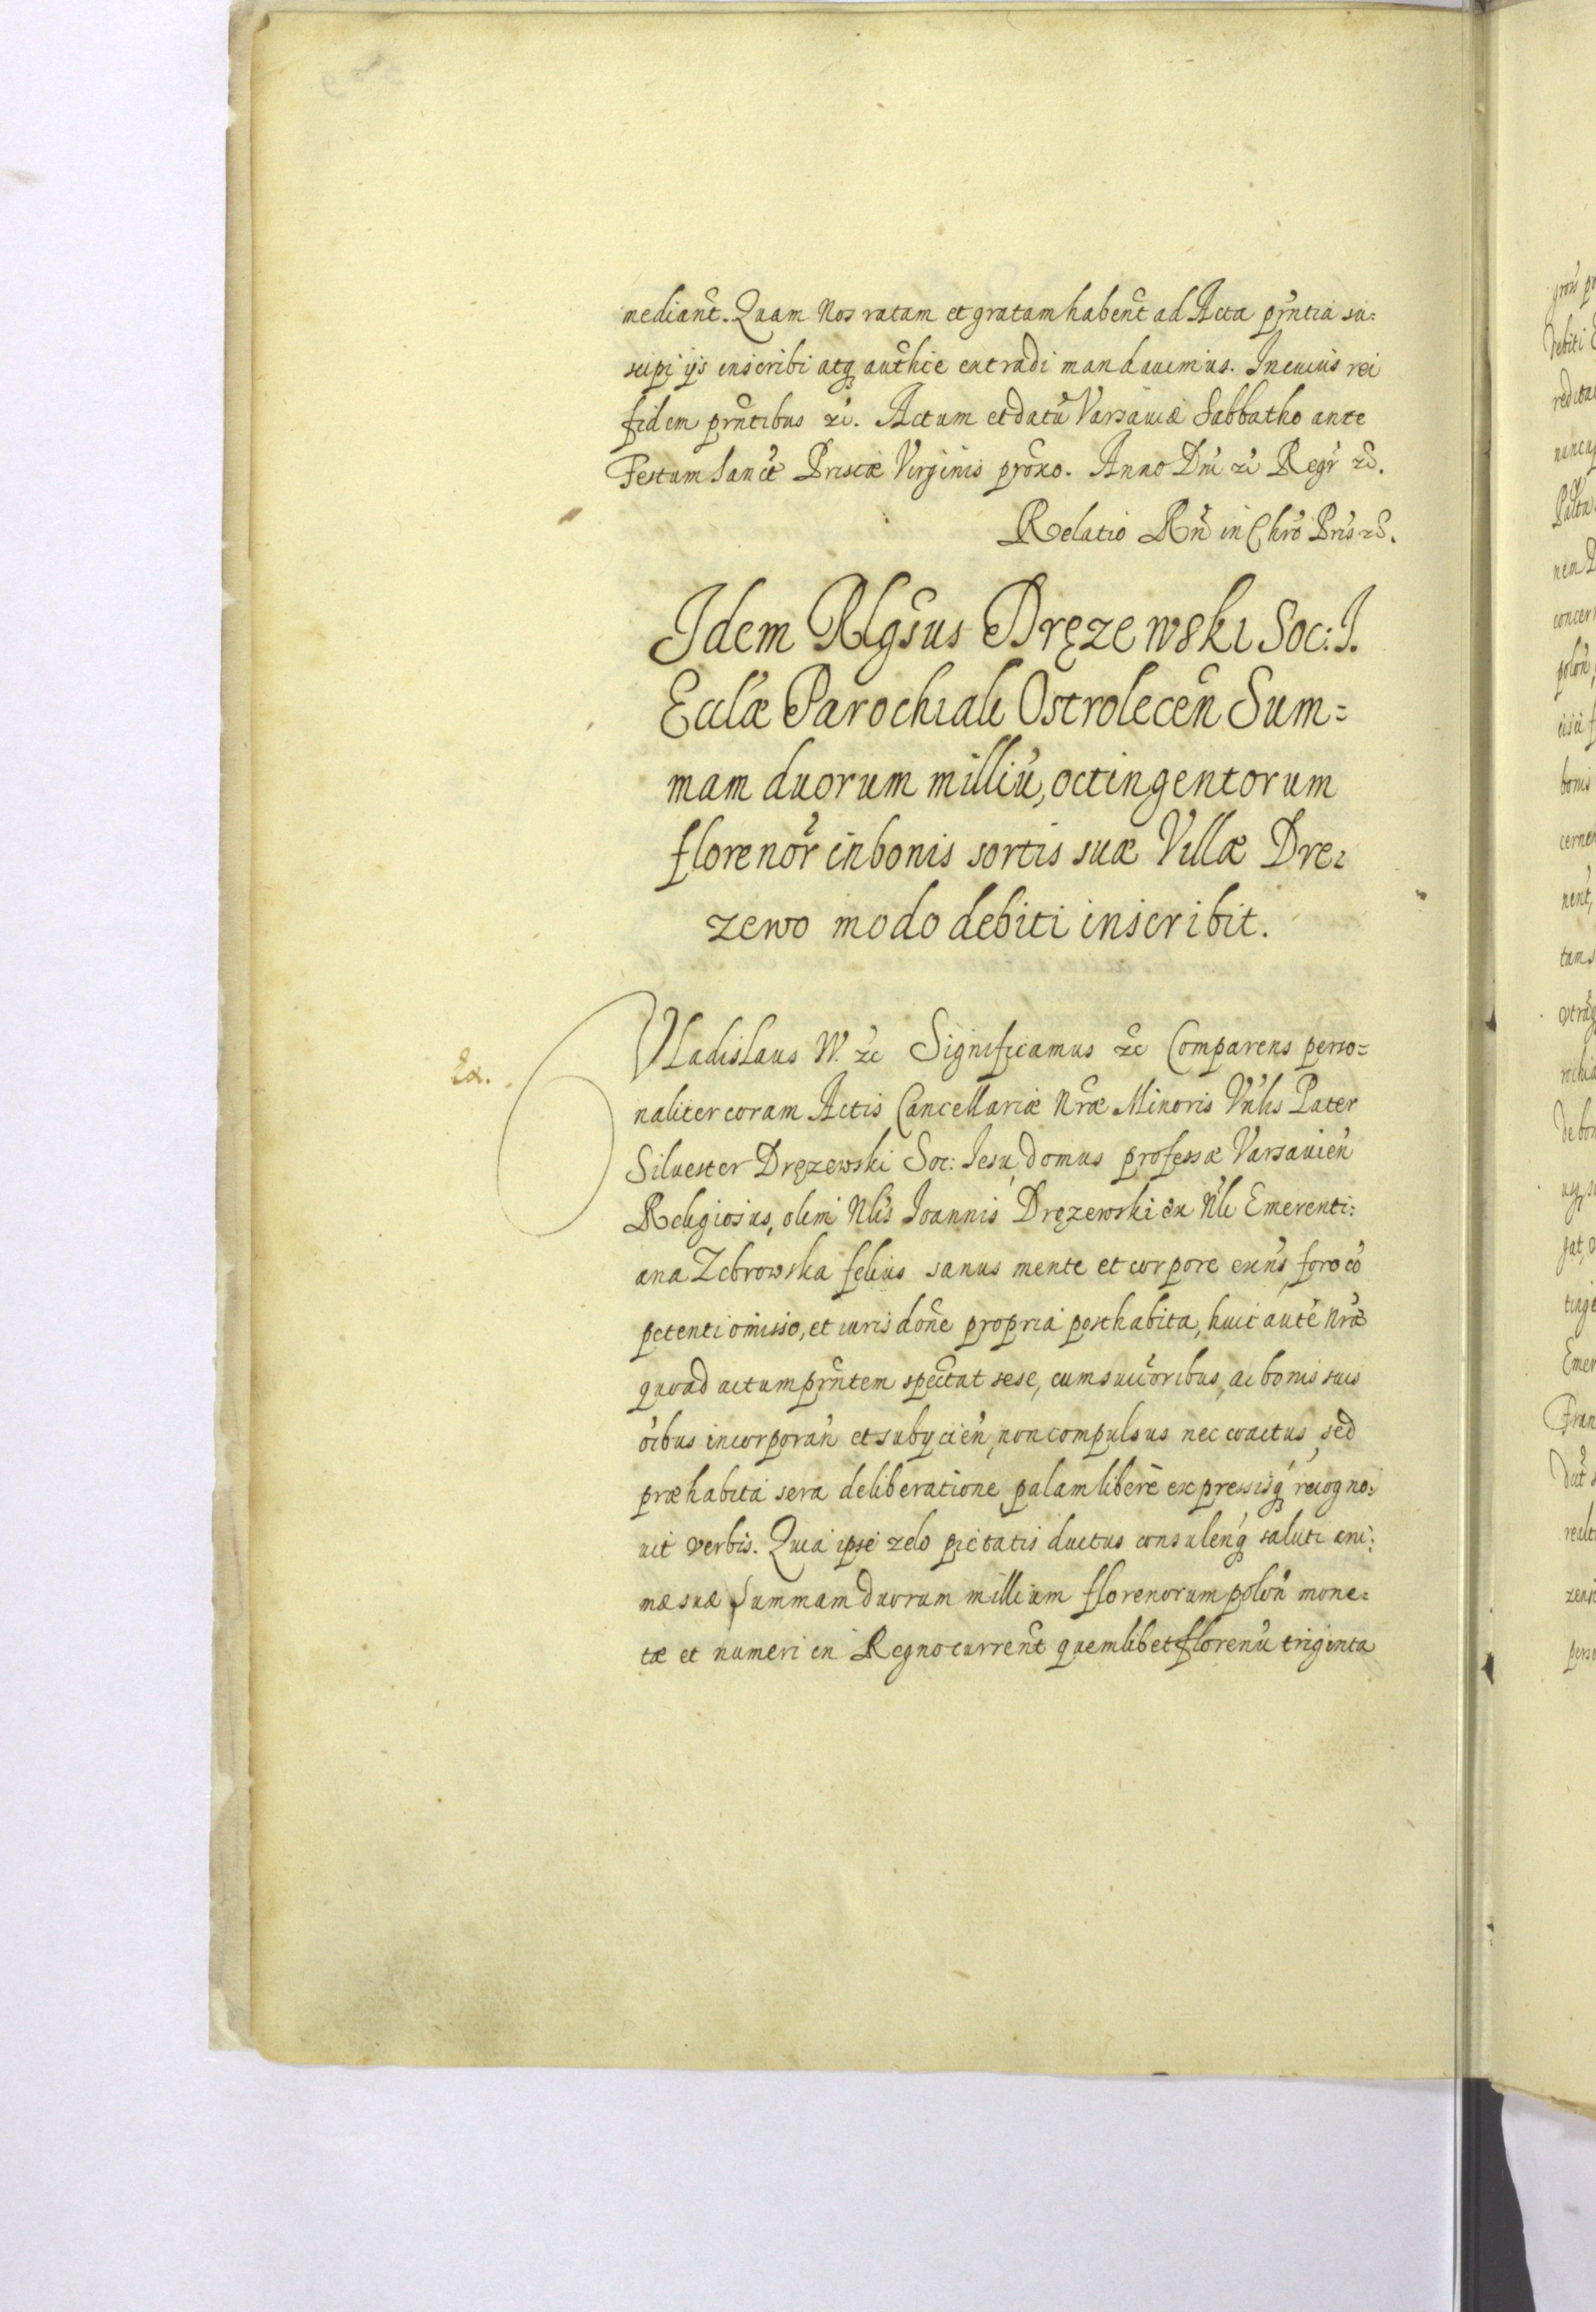 mediant̃. Quam Nos ratam et gratam habent̃ ad Acta prñtia su=
scipi ijs inscribi atq̃ authẽ extradi mandavimus. In cuius rei
fidem prñtibus &c. Actum et datũ Varsaviæ Sabbatho ante
Festum Sanctæ Priscæ Virginis proxõ. Anno Dñi &c Regñ &c.
Relatio Rñdi in Chrõ Pris &c.
Idem Rlgĩsus Dręzewski Soc: J.
Eccl̃æ Parochiali Ostrolecen̄ Sum=
mam duorum milliũ, octingentorum
florenor̃ in bonis sortis suæ Villæ Dre=
zewo modo debiti inscribit.
Ex.
Vladislaus IV. &c Significamus &c Comparens perso=
naliter coram Actis Cancellariæ Nr̃æ Minoris Vñlis Pater
Silvester Dręzewski Soc: Iesu, domus professæ Varsavieñ
Religiosus, olim Nl̃is Joannis Dręzewski ex Nl̃i Emerenti=
ana Zebrowska filius sanus mente et corpore exĩns, foro cõ
petenti omisso, et iuris dõne propria posthabita, huic autẽ Nr̃æ
quoad actum prñtem spectat sese, cum succ̃oribus, ac bonis suis
õibus incorporañ et subijcieñ, non compulsus nec coactus, sed
præhabita sera deliberatione palam liberè expressisq̃ recogno=
vit verbis. Quia ipse zelo pietatis ductus consulenq̃ saluti ani=
mæ suæ Summam duorum millium florenorum poloñ mone=
tæ et numeri in Regno current̃ quemlibet florenũ triginta